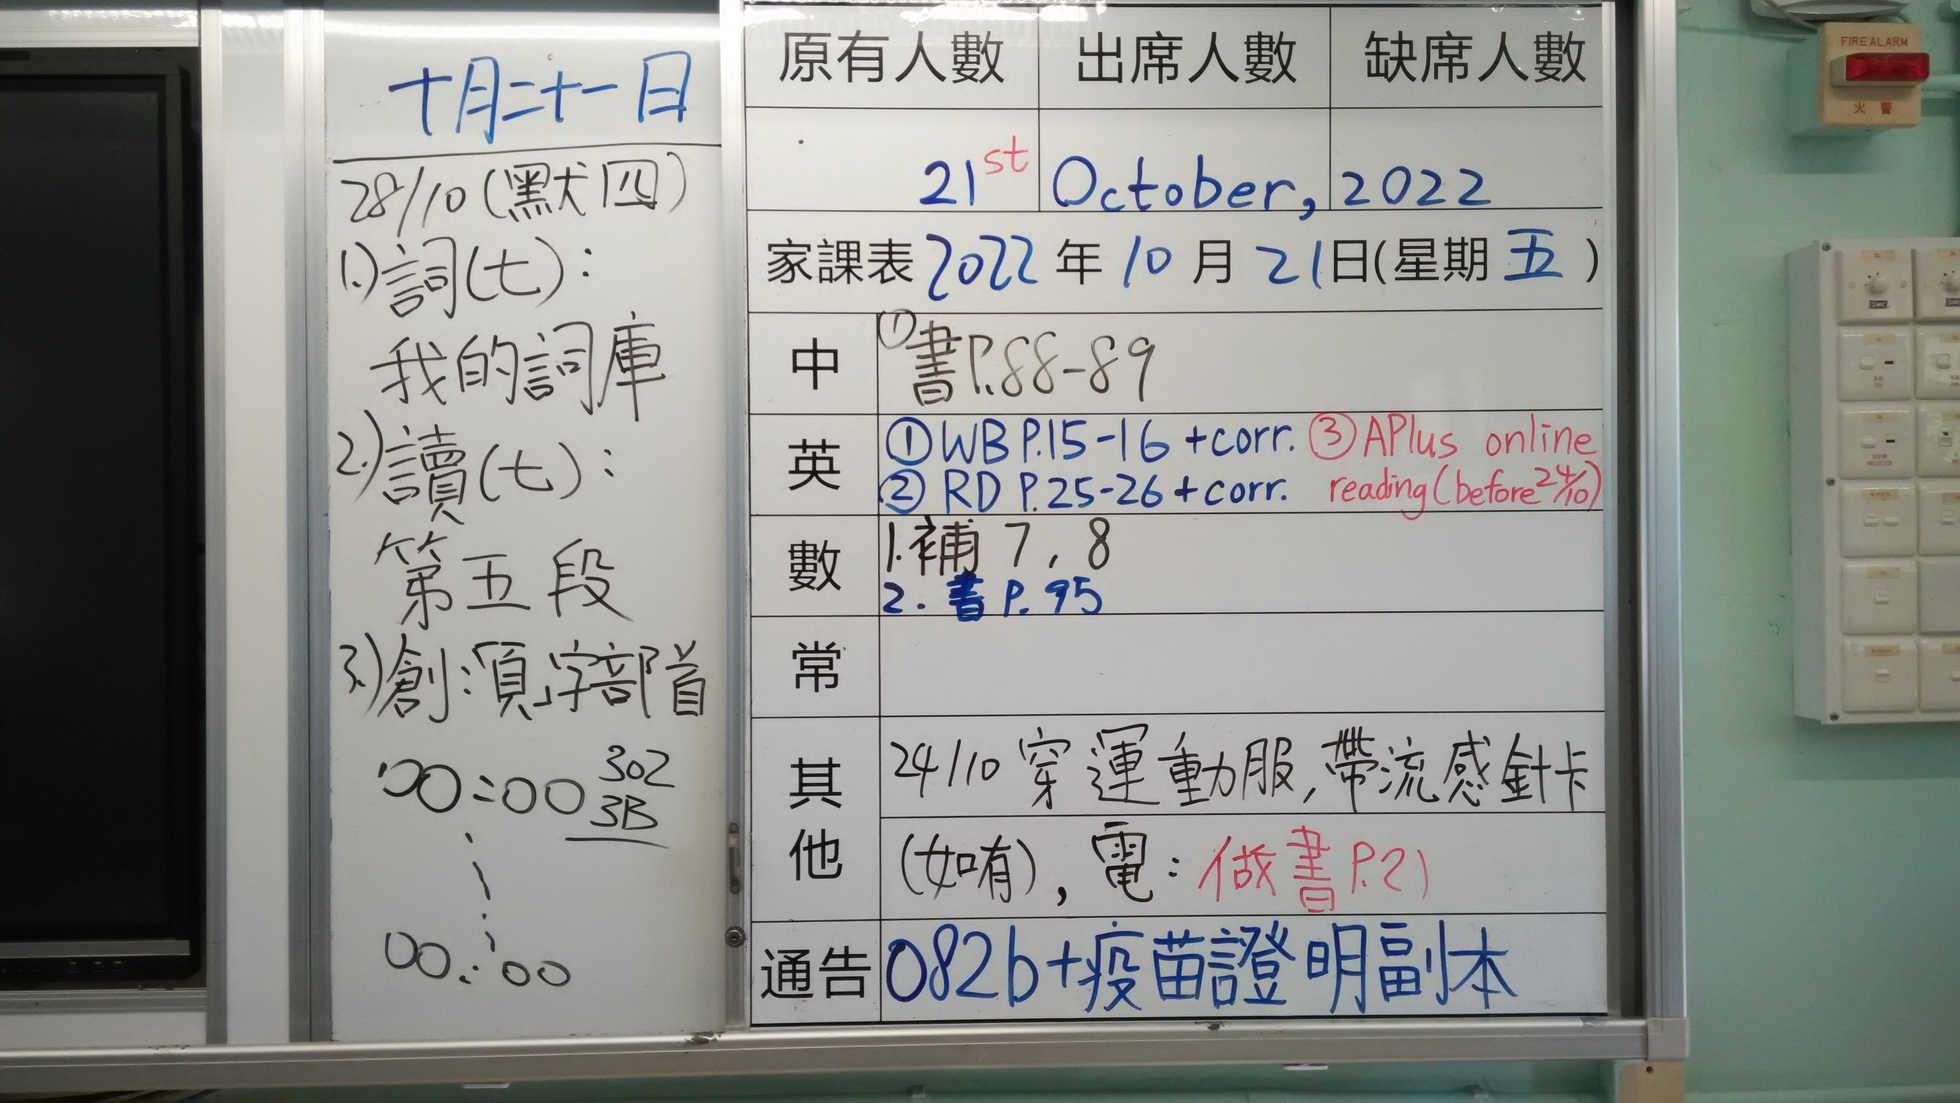 十月二十一日
28/10(默四)
1.)詞(七):
我的詞庫
2.)讀(七):
第五段
3.)創:須字部首
00:00
302
3B
00:00
原有人數 出席人數 缺席人數
21st October, 2022
家課表2022年10月21日(星期五)
中 ①書P.88-89
英 ①WB P.15-16 +corr. ③APlus online
②RD P.25-26+corr. reading(before 24/10)
數 1.補7,8
2.書P.95
常
其他 24/10穿運動服,帶流感針卡
(如有),電:做書P.21
通告 082b+疫苗證明副本
FIRE ALARM
火警